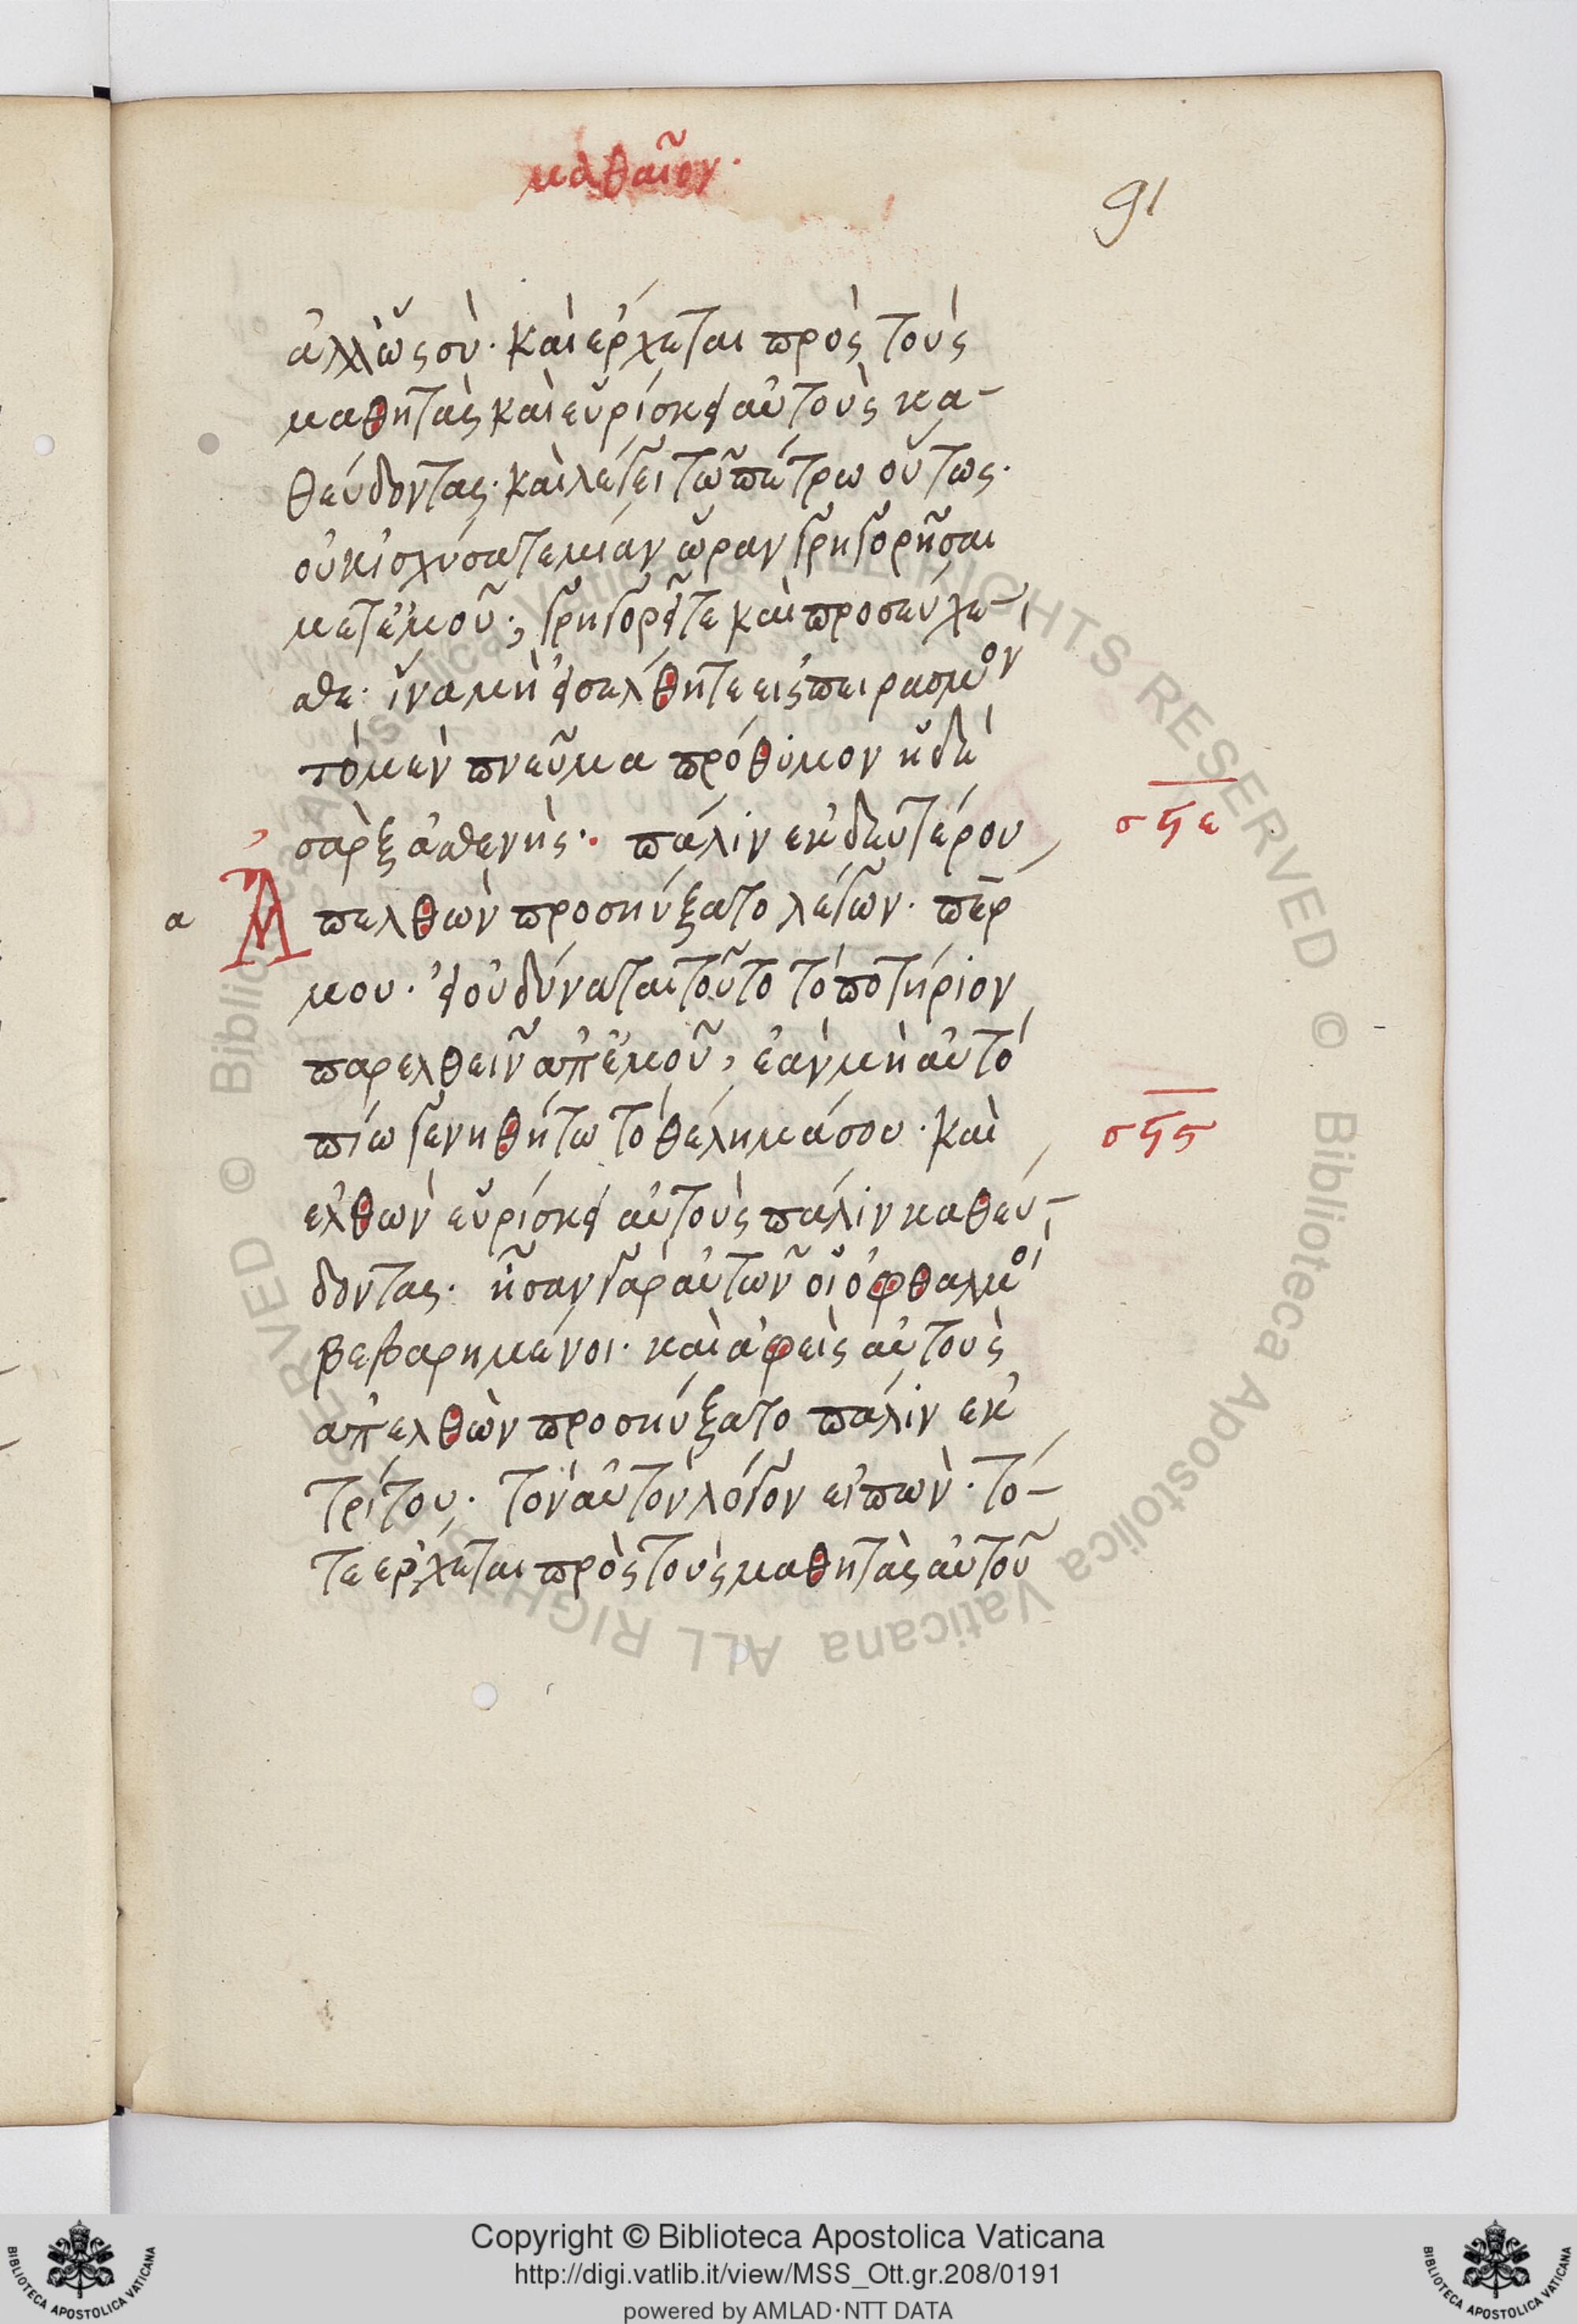 μαθαῖον.
91
ἀλλ' ὡς σὺ. καὶ ἔρχεται πρὸς τοὺς
μαθητὰς καὶ εὑρίσκει αὐτοὺς κα-
θεύδοντας. καὶ λέγει τῶ πέτρω οὕτως.
οὐκ ἰσχύσατε μίαν ὥραν γρηγορῆσαι
μετ' ἐμοῦ; γρηγορεῖτε καὶ προσεύχε-
σθε. ἵνα μὴ εἰσέλθητε εἰς πειρασμὸν
τὸ μὲν πνεῦμα πρόθυμον ἡ δὲ
σὰρξ ἀσθενὴς. πάλιν ἐκ δευτέρου
σϟε
α
Ἀπελθὼν προσηύξατο λέγων. περ
μου. εἰ οὐ δύναται τοῦτο τὸ ποτήριον
παρελθεῖν ἀπ' ἐμοῦ, ἐὰν μὴ αὐτὸ
πίω γενηθήτω τὸ θέλημά σου. καὶ
σϟς
ἐλθὼν εὑρίσκει αὐτοὺς πάλιν καθεύ-
δοντας. ἦσαν γὰρ αὐτῶν οἱ ὀφθαλμοὶ
βεβαρημένοι. καὶ ἀφεὶς αὐτοὺς
ἀπελθὼν προσηύξατο πάλιν ἐκ
τρίτου. τὸν αὐτὸν λόγον εἰπὼν. τό-
τε ἔρχεται πρὸς τοὺς μαθητὰς αὐτοῦ
© Biblioteca Apostolica Vaticana ALL RIGHTS RESERVED © Biblioteca Apostolica Vaticana ALL RIGHTS RESERVED
Copyright © Biblioteca Apostolica Vaticana
http://digi.vatlib.it/view/MSS_Ott.gr.208/0191
powered by AMLAD·NTT DATA
BIBLIOTECA APOSTOLICA VATICANA
BIBLIOTECA APOSTOLICA VATICANA